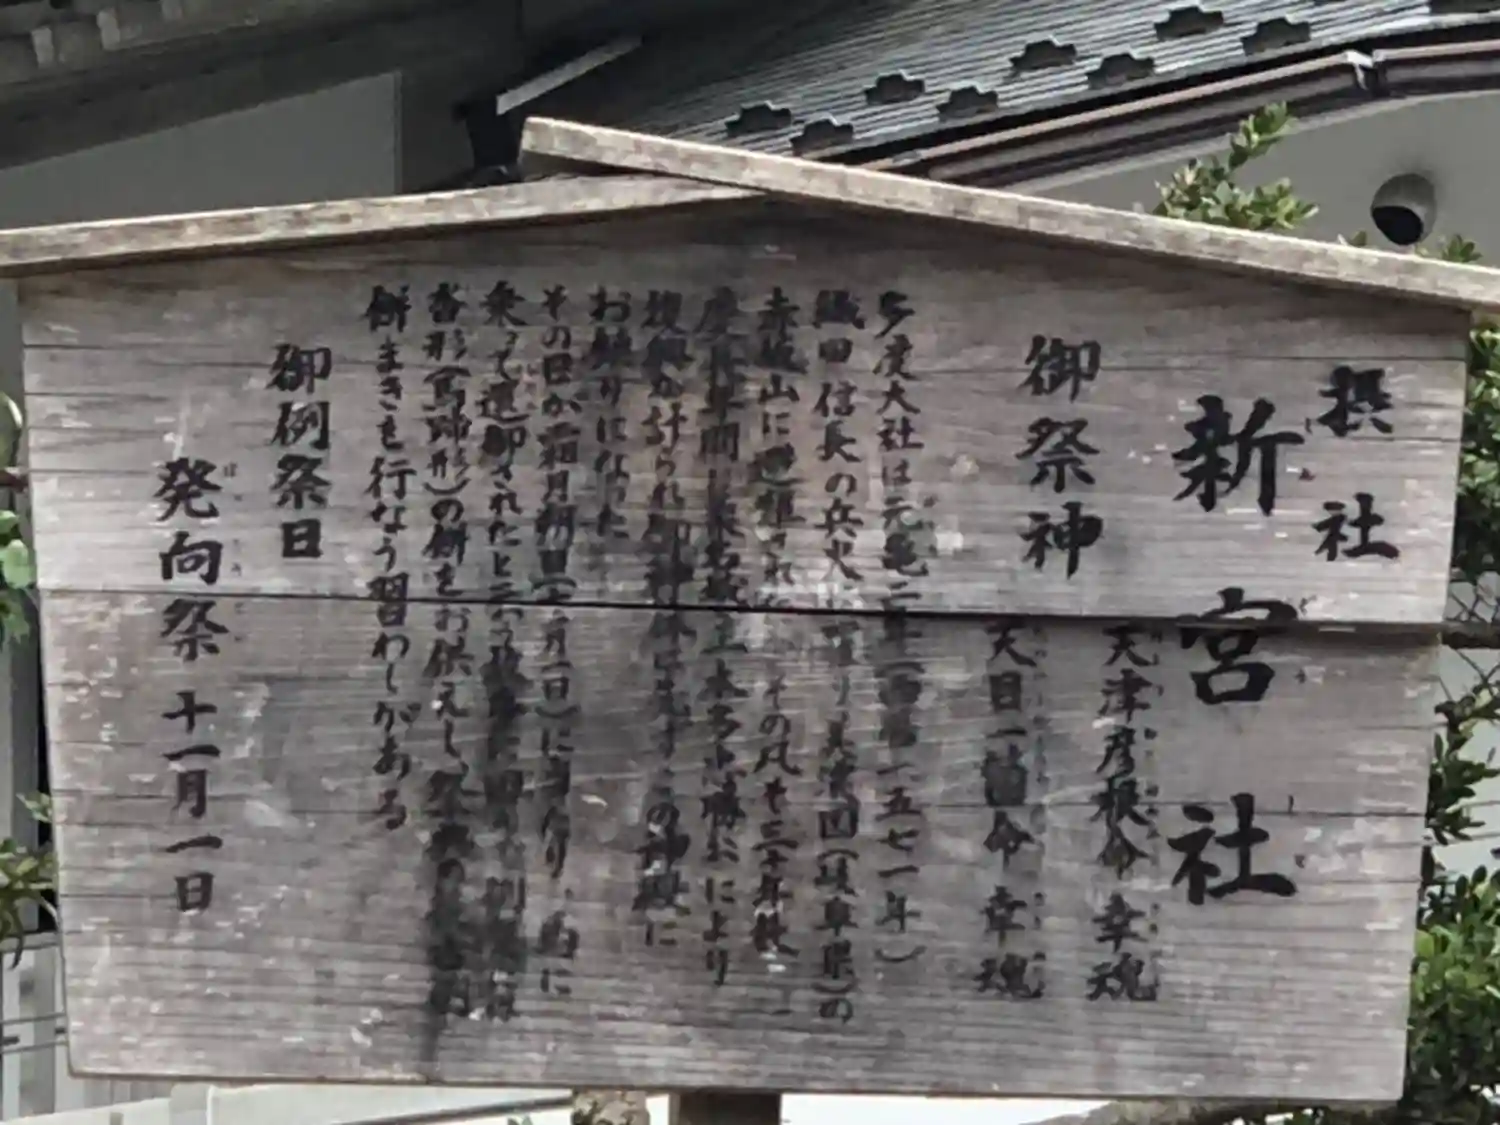 摂社
新宮社
御祭神
天津彦根命 幸魂
天目一箇命 幸魂
多度大社は元亀二年(西暦一五七一年)
織田信長の兵火により美濃国(岐阜県)の
赤坂山に避難された その凡そ三十年後
慶長年間に桑名城主本多忠勝公により
復興が計られ御神体は先ずこの神殿に
お帰りになった
その日が霜月朔日(十一月一日)に当り、馬に
乗って還御されたと
沓形(馬蹄形)の餅をお供えし、祭典の
餅まきを行なう習わしがある
御例祭日
発向祭 十一月一日